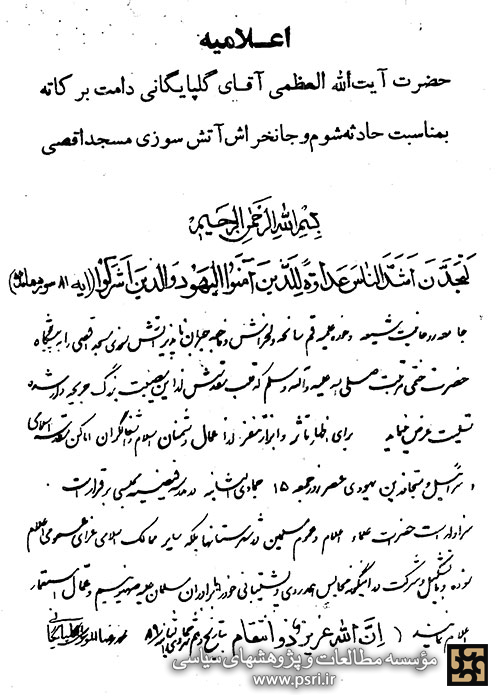 اعلامیه
حضرت آیت‌الله العظمی آقای گلپایگانی دامت برکاته
بمناسبت حادثه شوم و جانخراش آتش سوزی مسجد اقصی
بسم الله الرحمن الرحیم
لتجدن اشد الناس عداوة للذین آمنوا الیهود والذین اشرکوا (آیه ۸۱ سوره مائده)
جامعه روحانیت شیعه و حوزه علمیه قم سانحه دلخراش و فاجعه جبران ناپذیر آتش سوزی مسجد اقصی را به پیشگاه
حضرت ختمی مرتبت صلی الله علیه وآله وسلم که قلب مقدسش از این مصیبت بزرگ جریحه دار شده
تسلیت عرض مینماید برای اظهار تاثر و ابراز تنفر از اعمال دشمنان اسلام و اماکن مقدسه اسلامی
و اسرائیل و متجاوزین یهودی عصر روز جمعه ۱۵ جمادی الثانیه در مدرسه فیضیه مجلسی برقرار است
سزاوار است حضرات علماء اعلام و عموم مسلمین در شهرستانها بلکه سایر ممالک اسلامی عزای عمومی اعلام
نموده و با تشکیل و شرکت در اینگونه مجالس همدردی و پشتیبانی خود را از برادران مسلمان علیه صهیونیسم و عمال استعمار
اعلام نمایند ان الله عزیز ذو انتقام بتاریخ دهم جمادی الثانیه ۸۹ محمدرضا الموسوی الگلپایگانی
مؤسسه مطالعات و پژوهشهای سیاسی
www.psri.ir